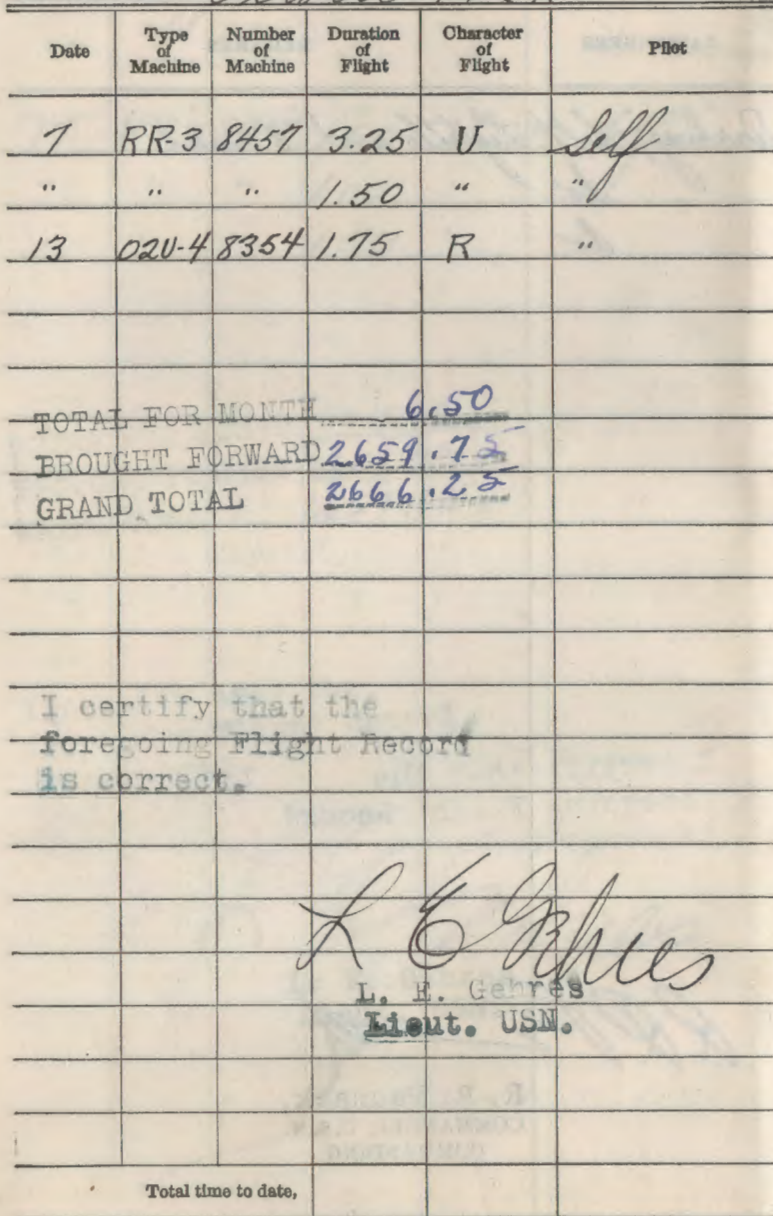 Date Type of Machine Number of Machine Duration of Flight Character of Flight Pilot
7 RR-3 8457 3.25 U Self
" " " 1.50 " "
13 O2U-4 8354 1.75 R "
TOTAL FOR MONTH 6.50
BROUGHT FORWARD 2659.75
GRAND TOTAL 2666.25
I certify that the
foregoing Flight Record
is correct.
L E Gehres
L. E. Gehres
Lieut. USN.
Total time to date,